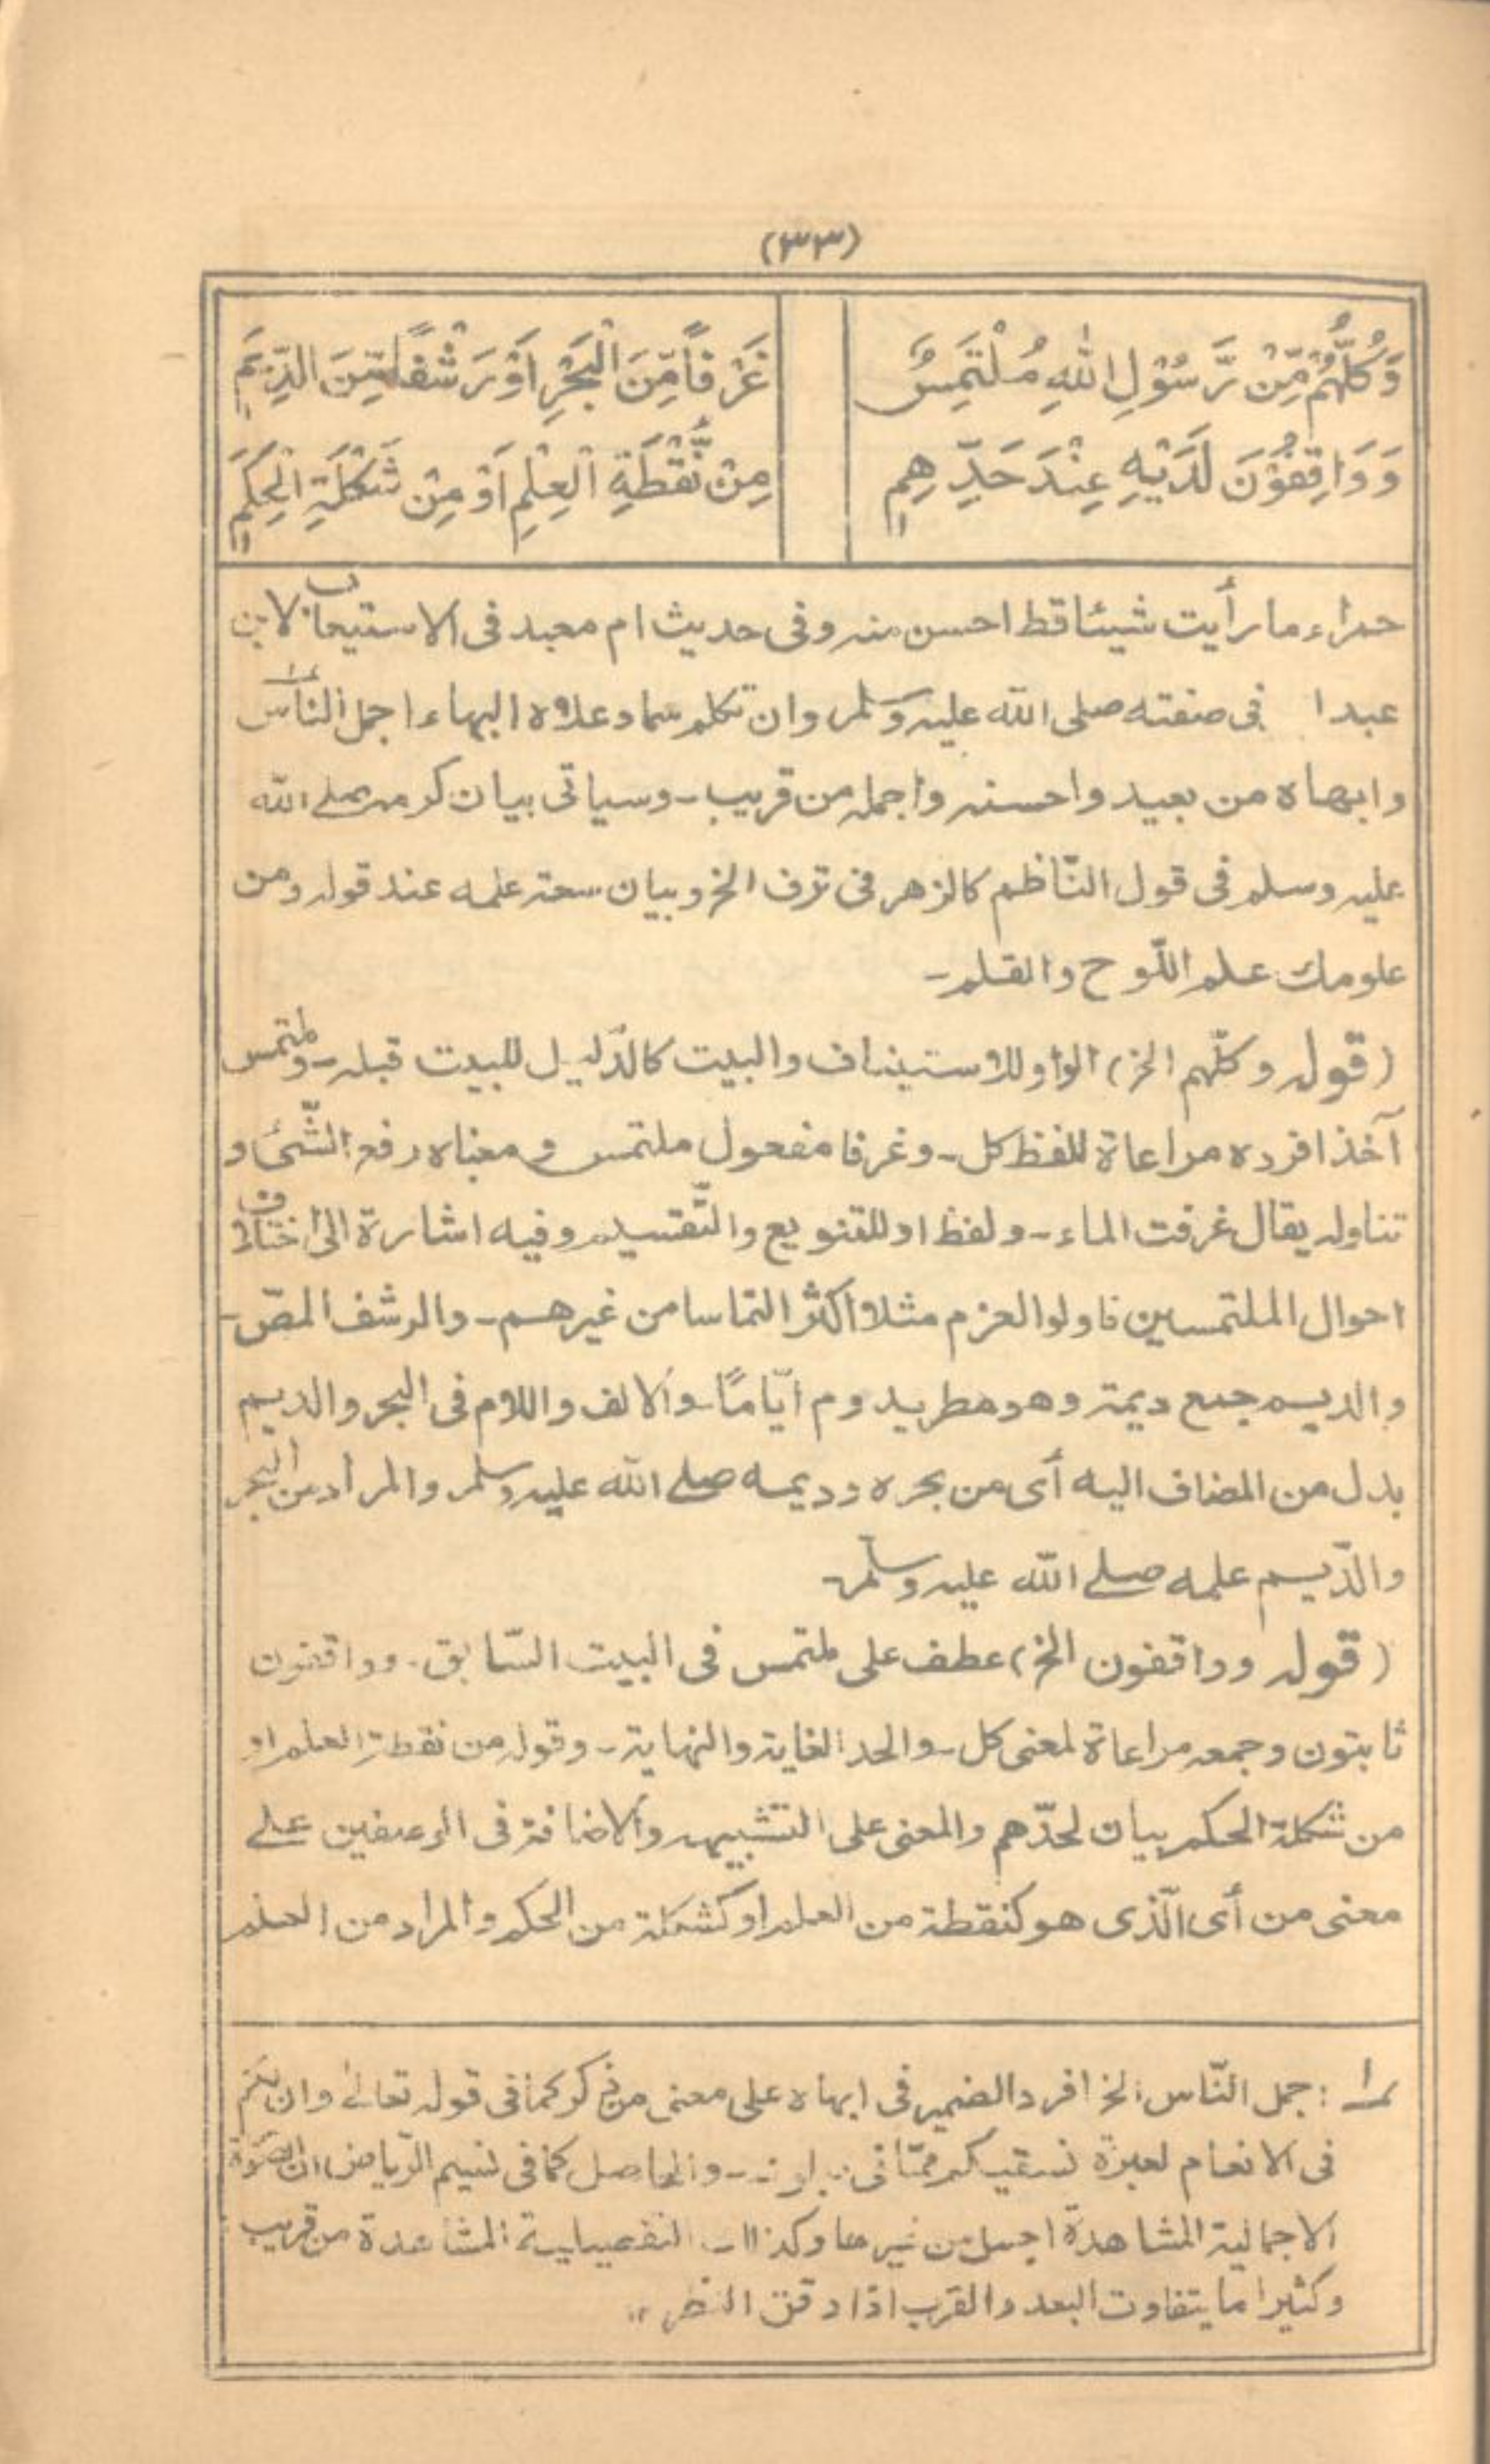 (٣٣)
وَكُلُّهُمْ مِّنْ رَّسُوْلِ اللهِ مُلْتَمِسٌ غَرْفًا مِّنَ الْبَحْرِ اَوْ رَشْفًا مِّنَ الدِّيَمِ
وَوَاقِفُوْنَ لَدَيْهِ عِنْدَ حَدِّهِمِ مِنْ نُّقْطَةِ الْعِلْمِ اَوْ مِنْ شَكْلَةِ الْحِكَمِ
حمراء ما رأيت شيئا قط احسن منه وفى حديث ام معبد فى الاستيعاب لابن
عبدا فى صفته صلى الله عليه وسلم وان تكلم سما وعلاه البهاء اجمل الناس
وابهاه من بعيد واحسنه واجمله من قريب ـ وسياتى بيان كرمه صلے الله
عليه وسلم فى قول النّاظم كالزهر فى ترف الخ وبيان سعة علمه عند قوله ومن
علومك علم اللّوح والقلم ـ
(قوله وكلّهم الخ) الواو للاستيناف والبيت كالدّليل للبيت قبله ـ وملتمس
آخذ افرده مراعاة للفظ كل ـ وغرفا مفعول ملتمس ومعناه رفع الشّئ و
تناوله يقال غرفت الماء ـ ولفظ او للتنويع والتّقسيم وفيه اشارة الى اختلاف
احوال الملتمسين فاولوا العزم مثلا اكثر التماسا من غيرهم ـ والرشف المصّ ـ
والديم جمع ديمة وهو مطر يدوم ايّامًا ـ والالف واللام فى البحر والديم
بدل من المضاف اليه أى من بحره وديمه صلے الله عليه وسلم والمراد من البحر
والدّيم علمه صلے الله عليه وسلم ـ
(قوله وواقفون الخ) عطف على ملتمس فى البيت السّابق ـ وواقفون
ثابتون وجمعه مراعاة لمعنى كل ـ والحد الغاية والنهاية ـ وقوله من نقطة العلم او
من شكلة الحكم بيان لحدّهم والمعنى على التشبيه والاضافة فى الموضعين على
معنى من أى الّذى هو كنقطة من العلم او كشكلة من الحكم والمراد من العلم
١ : جمل النّاس الخ افرد الضمير فى ابهاه على معنى من ذكر كما فى قوله تعالى وان لكم
فى الانعام لعبرة نسقيكم ممّا فى ـ والحاصل كما فى نسيم الرّياض ان الصورة
الاجمالية المشاهدة اجمل من غيرها وكذا التفصيلية المشاهدة من قريب
وكثيرا ما يتفاوت البعد والقرب اذا دقق النظر ١٢